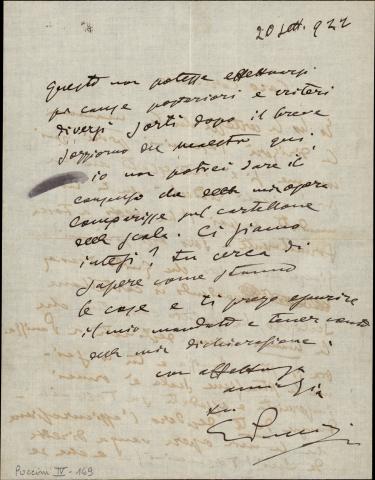 20 Sett. 922
Questo non potesse effettuarsi
per cause posteriori e criteri
diversi sorti dopo il breve
soggiorno del maestro qui
io non potrei dare il
consenso da della mia opera
comparisse sul cartellone
della Scala. Ci siamo
intesi? Tu cerca di
sapere come stanno
le cose e ti prego esaurire
il mio mandato e tener conto
della mia dichiarazione.
con affettuosa
amicizia
tuo
GPuccini
Puccini IV-149